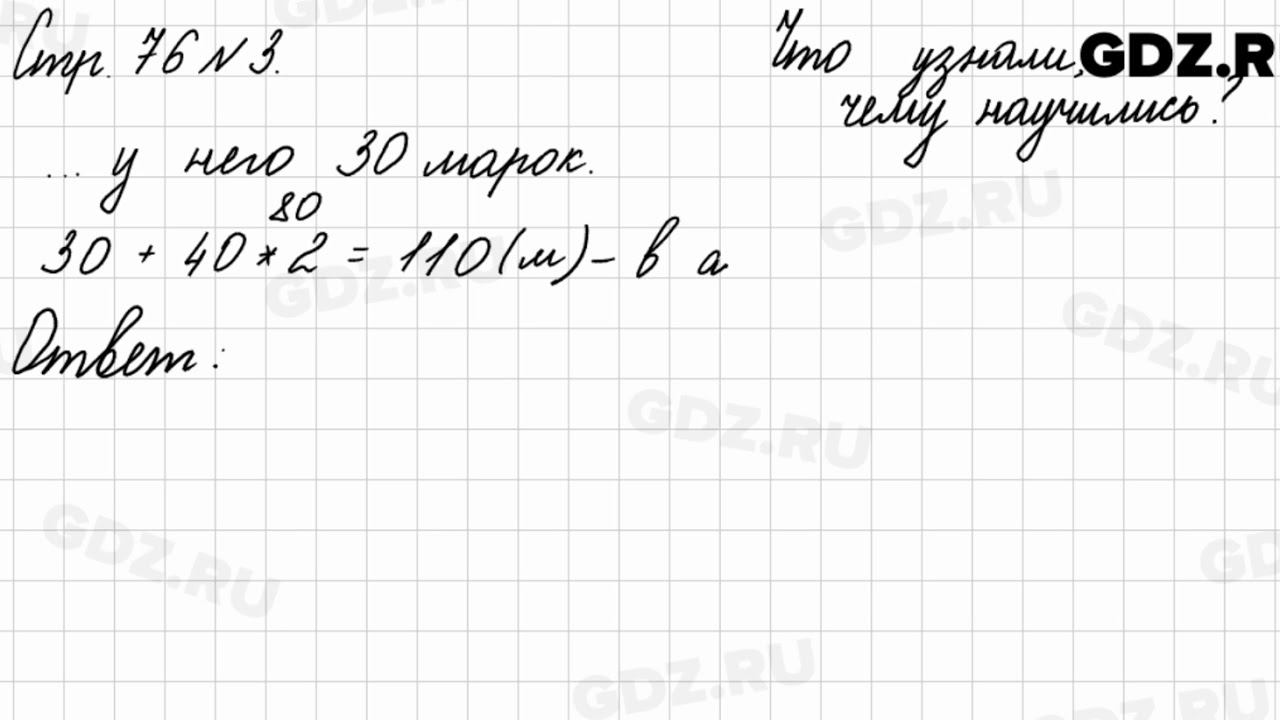 Стр. 76 N 3.
Что узнали,
чему научились?
GDZ.R
... у него 30 марок.
80
30 + 40 * 2 = 110 (м) - в а
Ответ :
GDZ.RU
GDZ.RU
GDZ.RU
GDZ.RU
GDZ.RU
GDZ.RU